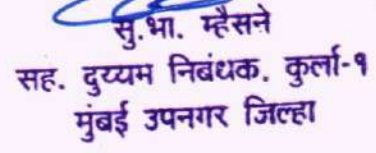 सु.भा. म्हैसने
सह. दुय्यम निबंधक. कुर्ला-१
मुंबई उपनगर जिल्हा